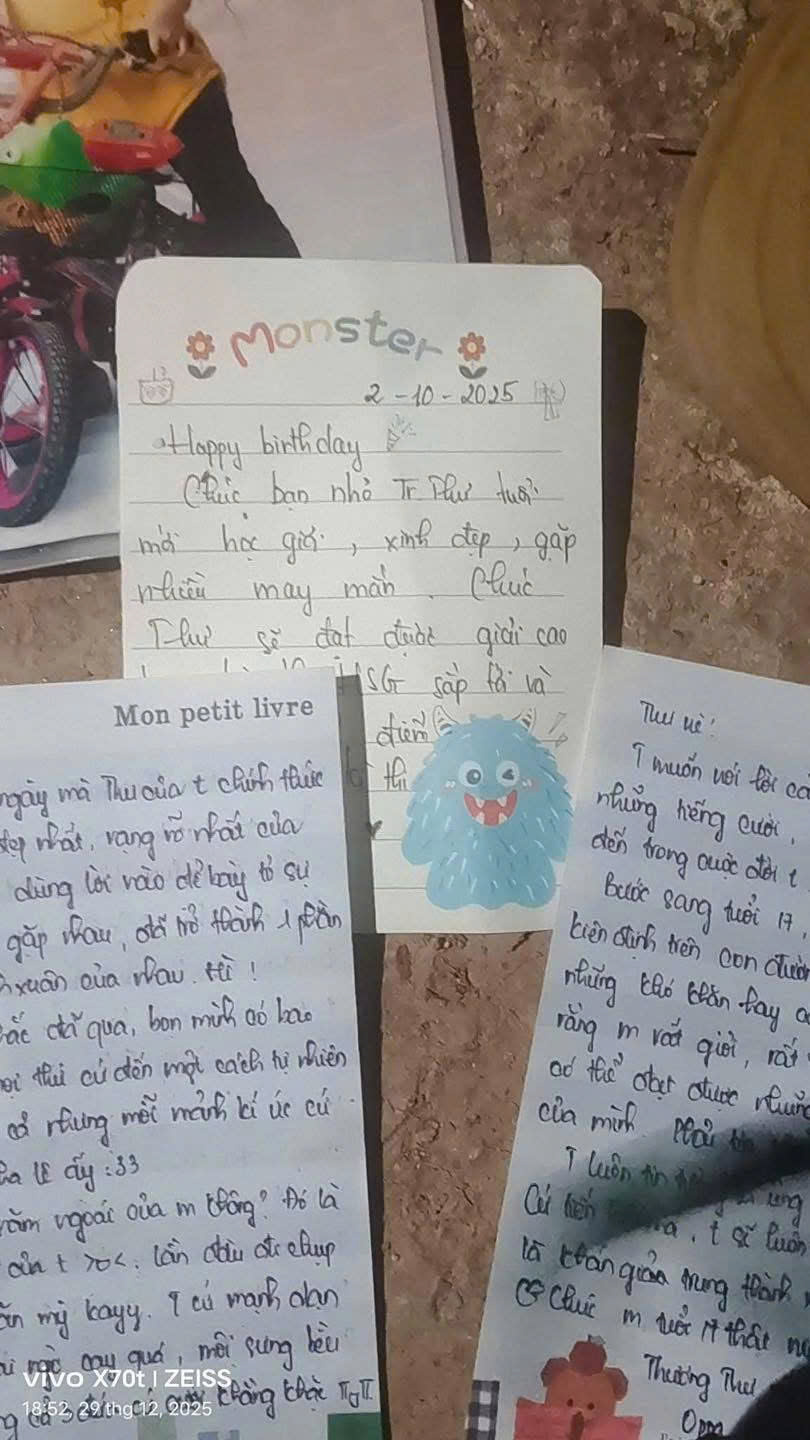 Monster
2-10-2025
Happy birthday
Chúc bạn nhỏ Tr Thư tuổi
mới học giỏi, xinh đẹp, gặp
nhiều may mắn. Chúc
Thư sẽ đạt được giải cao
HSG sắp tới và
điểm
thi
Mon petit livre
ngày mà Thư của t chính thức
đẹp nhất, rạng rỡ nhất của
dùng lời nào để bày tỏ sự
gặp nhau, đã trở thành 1 phần
xuân của nhau. Hì!
đã qua, bọn mình có bao
thứ cứ đến một cách tự nhiên
cả nhưng mỗi mảnh kí ức cứ
lẽ ấy :33
năm ngoái của m không? Đó là
của t >o<. Lần đầu đi chụp
ăn mỳ cayy. T cứ mạnh dạn
cay quá, môi sưng
không TT
Thư nè!
T muốn nói lời cả
những tiếng cười,
đến trong cuộc đời t
Bước sang tuổi 17,
kiên định trên con đườn
những khó khăn hay
rằng m rất giỏi, rất
có thể đạt được những
của mình
T luôn tin
Cứ
, t sẽ luôn
là khán giả trung thành
Chúc m tuổi 17 thật
Thương Thư
Oppa
vivo X70t | ZEISS
18:52, 29 thg 12, 2025